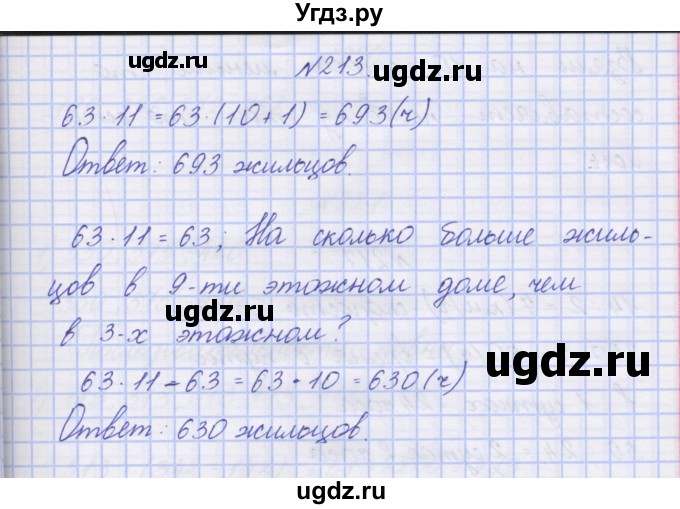 Угдз.ру
№213.
ugdz.ru
ugdz.ru
63·11 = 63·(10+1) = 693(ч)
Ответ: 693 жильцов.
63·11 = 63; На сколько больше жиль-
цов в 9-ти этажном доме, чем
ugdz.ru
в 3-х этажном?
ugdz.ru
63·11 - 63 = 63·10 = 630(ч)
Ответ: 630 жильцов.
ugdz.ru
ugdz.ru